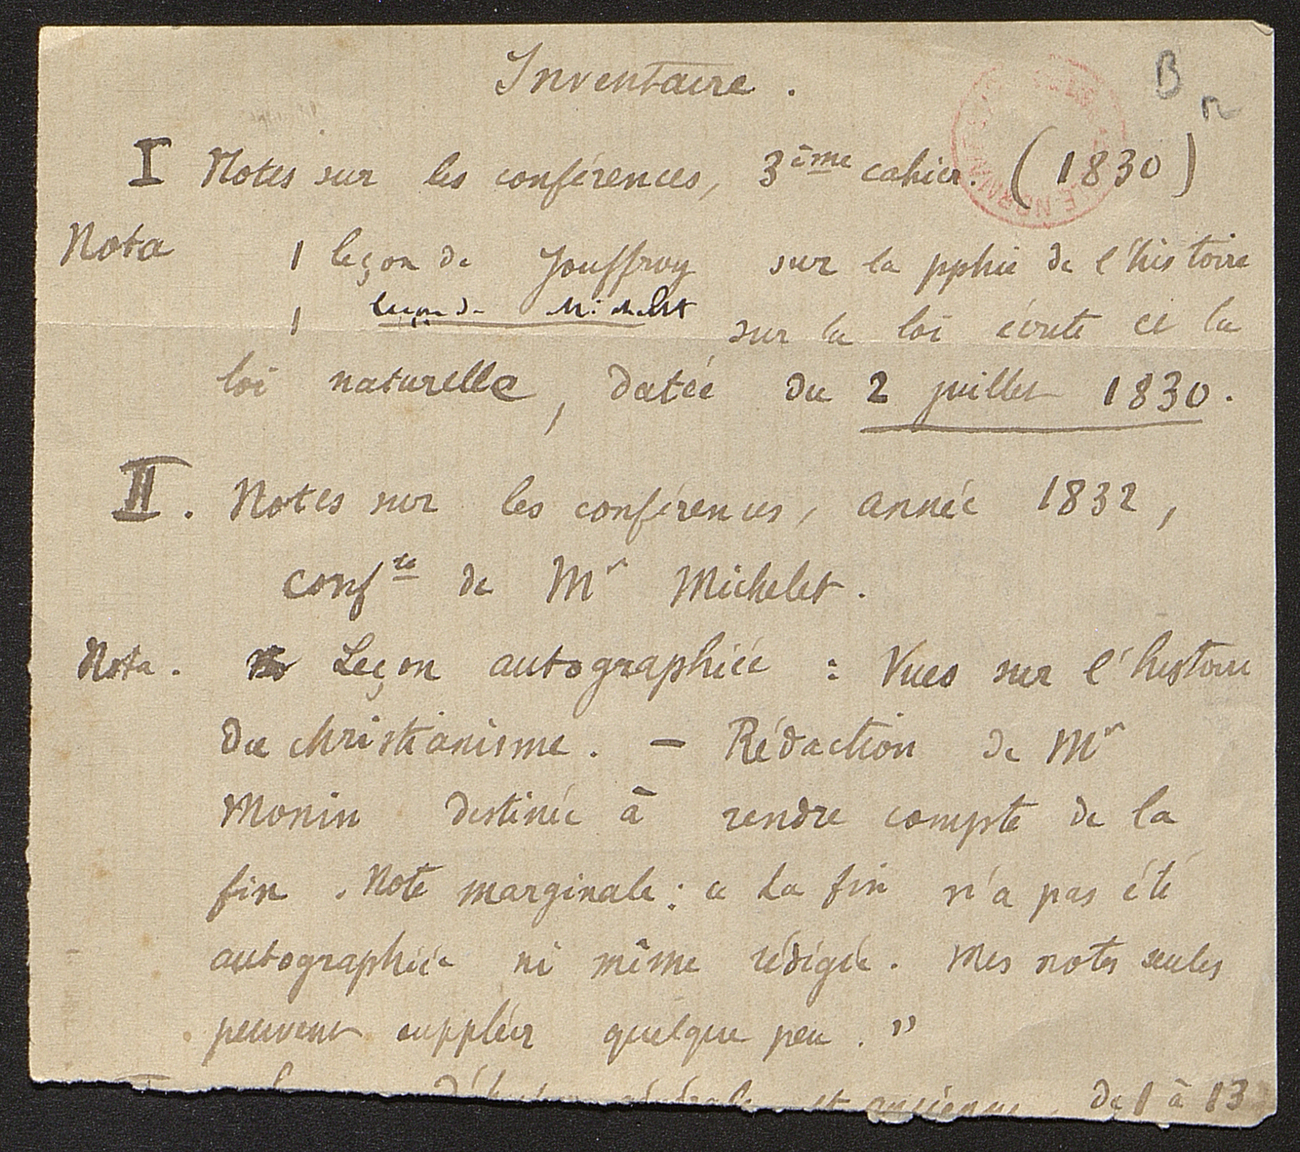 B
n
Inventaire.
I Notes sur les conférences, 3ème cahier. (1830)
Nota 1 leçon de Jouffroy sur la pphie de l'histoire
1 leçon de Michelet sur la loi écrite et la
loi naturelle, datée du 2 juillet 1830.
II. Notes sur les conférences, année 1832,
confce de Mr Michelet.
Nota. Leçon autographiée : Vues sur l'histoire
du christianisme. — Rédaction de Mr
Monin destinée à rendre compte de la
fin. Note marginale : « La fin n'a pas été
autographiée ni même rédigée. Mes notes seules
peuvent suppléer quelque peu. »
générale et ancienne, de 1 à 13